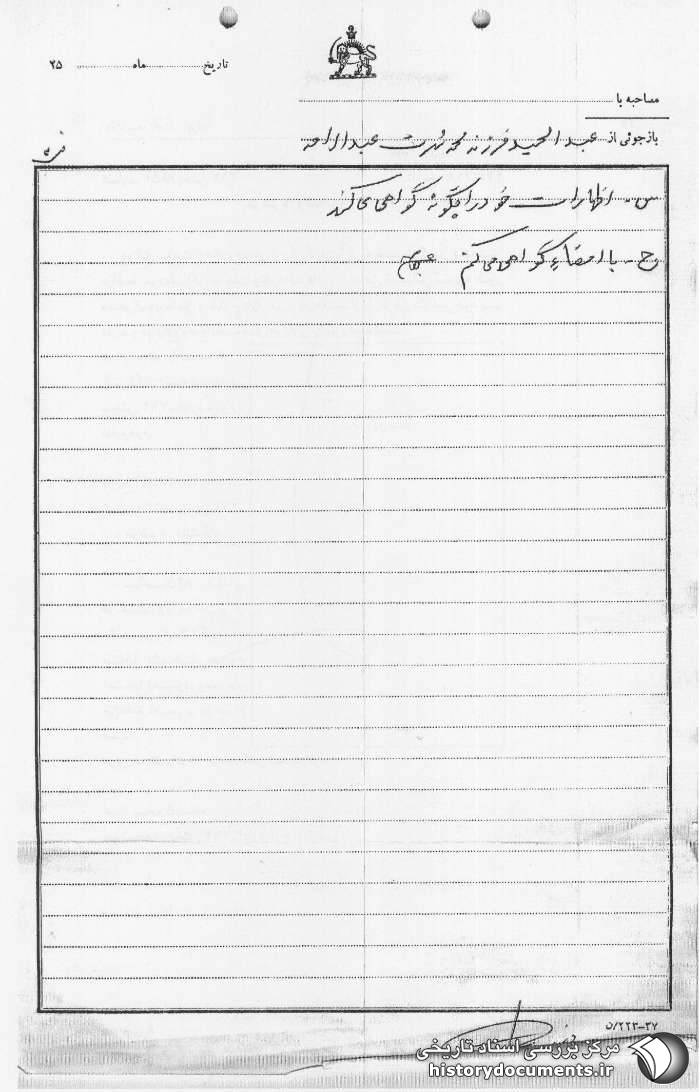 تاریخ ماه ۲۵
مصاحبه با
بازجوئی از عبدالحمید فرزند محمد شهرت
س - اظهارات خود را چگونه گواهی می‌کنید
ج - با امضاء گواهی می‌کنم
۲۲۳-۳۷/ن
مرکز بررسی اسناد تاریخی
historydocuments.ir